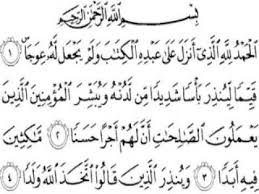 بِسْمِ اللَّهِ الرَّحْمَٰنِ الرَّحِيمِ
الْحَمْدُ لِلَّهِ الَّذِي أَنزَلَ عَلَىٰ عَبْدِهِ الْكِتَابَ وَلَمْ يَجْعَل لَّهُ عِوَجًا ١
قَيِّمًا لِّيُنذِرَ بَأْسًا شَدِيدًا مِّن لَّدُنْهُ وَيُبَشِّرَ الْمُؤْمِنِينَ الَّذِينَ
يَعْمَلُونَ الصَّالِحَاتِ أَنَّ لَهُمْ أَجْرًا حَسَنًا ٢ مَّاكِثِينَ
فِيهِ أَبَدًا ٣ وَيُنذِرَ الَّذِينَ قَالُوا اتَّخَذَ اللَّهُ وَلَدًا ٤